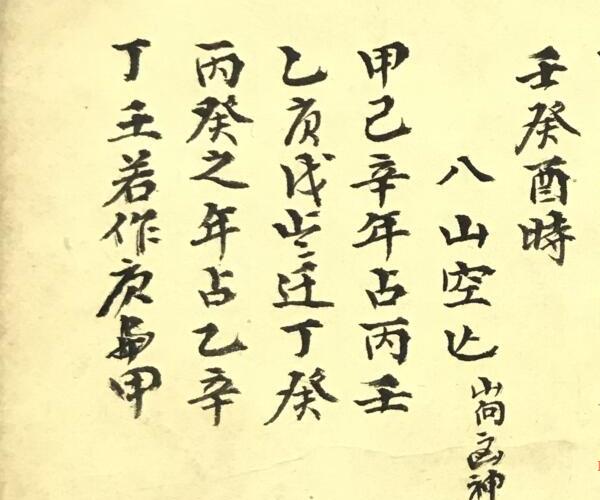 壬癸酉時
八山空亡 山向凶神
甲己辛年占丙壬
乙庚戊丁癸
丙癸之年占乙辛
丁壬若作庚甲